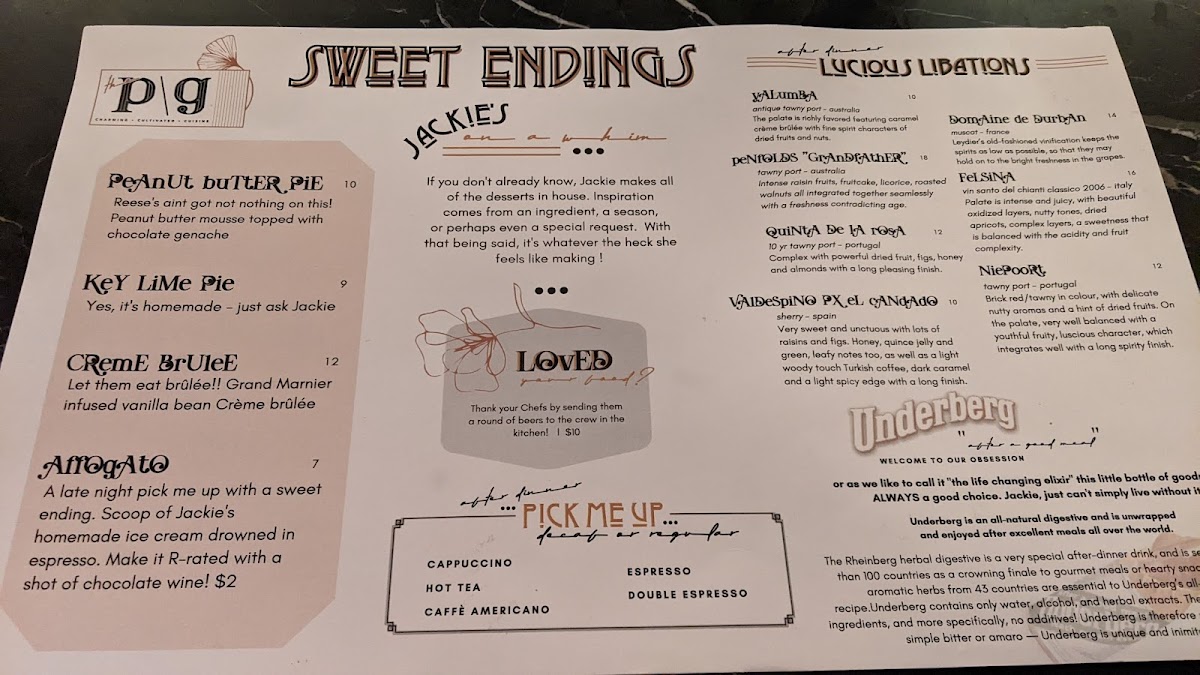 the
p\g
CHARMING • CULTIVATED • CUISINE
SWEET ENDINGS
PeANUt buTtER PiE 10
Reese's aint got not nothing on this!
Peanut butter mousse topped with
chocolate genache
KeY LiMe Pie 9
Yes, it's homemade - just ask Jackie
CRemE BrUleE 12
Let them eat brûlée!! Grand Marnier
infused vanilla bean Crème brûlée
AffOgAtO 7
A late night pick me up with a sweet
ending. Scoop of Jackie's
homemade ice cream drowned in
espresso. Make it R-rated with a
shot of chocolate wine! $2
JACKIE'S
on a whim
If you don't already know, Jackie makes all
of the desserts in house. Inspiration
comes from an ingredient, a season,
or perhaps even a special request. With
that being said, it's whatever the heck she
feels like making !
LOvED
your food?
Thank your Chefs by sending them
a round of beers to the crew in the
kitchen! | $10
after dinner
...PICK ME UP...
decaf or regular
CAPPUCCINO
HOT TEA
CAFFÈ AMERICANO
ESPRESSO
DOUBLE ESPRESSO
after dinner
LUCIOUS LIBATIONS
yALumBA 10
antique tawny port - australia
The palate is richly favored featuring caramel
crème brûlée with fine spirit characters of
dried fruits and nuts.
peNfOLDS "GrAnDfAtheR" 18
tawny port - australia
Intense raisin fruits, fruitcake, licorice, roasted
walnuts all integrated together seamlessly
with a freshness contradicting age.
QuiNtA De lA rOSA 12
10 yr tawny port - portugal
Complex with powerful dried fruit, figs, honey
and almonds with a long pleasing finish.
VAlDeSpiNO PX eL cANdAdO 10
sherry - spain
Very sweet and unctuous with lots of
raisins and figs. Honey, quince jelly and
green, leafy notes too, as well as a light
woody touch Turkish coffee, dark caramel
and a light spicy edge with a long finish.
DomAine de DurbAn 14
muscat - france
Leydier's old-fashioned vinification keeps the
spirits as low as possible, so that they may
hold on to the bright freshness in the grapes.
FeLSiNA 16
vin santo del chianti classico 2006 - italy
Palate is intense and juicy, with beautiful
oxidized layers, nutty tones, dried
apricots, complex layers, a sweetness that
is balanced with the acidity and fruit
complexity.
NiePooRt 12
tawny port - portugal
Brick red/tawny in colour, with delicate
nutty aromas and a hint of dried fruits. On
the palate, very well balanced with a
youthful fruity, luscious character, which
integrates well with a long spirity finish.
Underberg
"after a good meal"
WELCOME TO OUR OBSESSION
or as we like to call it "the life changing elixir" this little bottle of good
ALWAYS a good choice. Jackie, just can't simply live without it
Underberg is an all-natural digestive and is unwrapped
and enjoyed after excellent meals all over the world.
The Rheinberg herbal digestive is a very special after-dinner drink, and is se
than 100 countries as a crowning finale to gourmet meals or hearty snac
aromatic herbs from 43 countries are essential to Underberg's all-
recipe.Underberg contains only water, alcohol, and herbal extracts. The
ingredients, and more specifically, no additives! Underberg is therefore
simple bitter or amaro — Underberg is unique and inimit